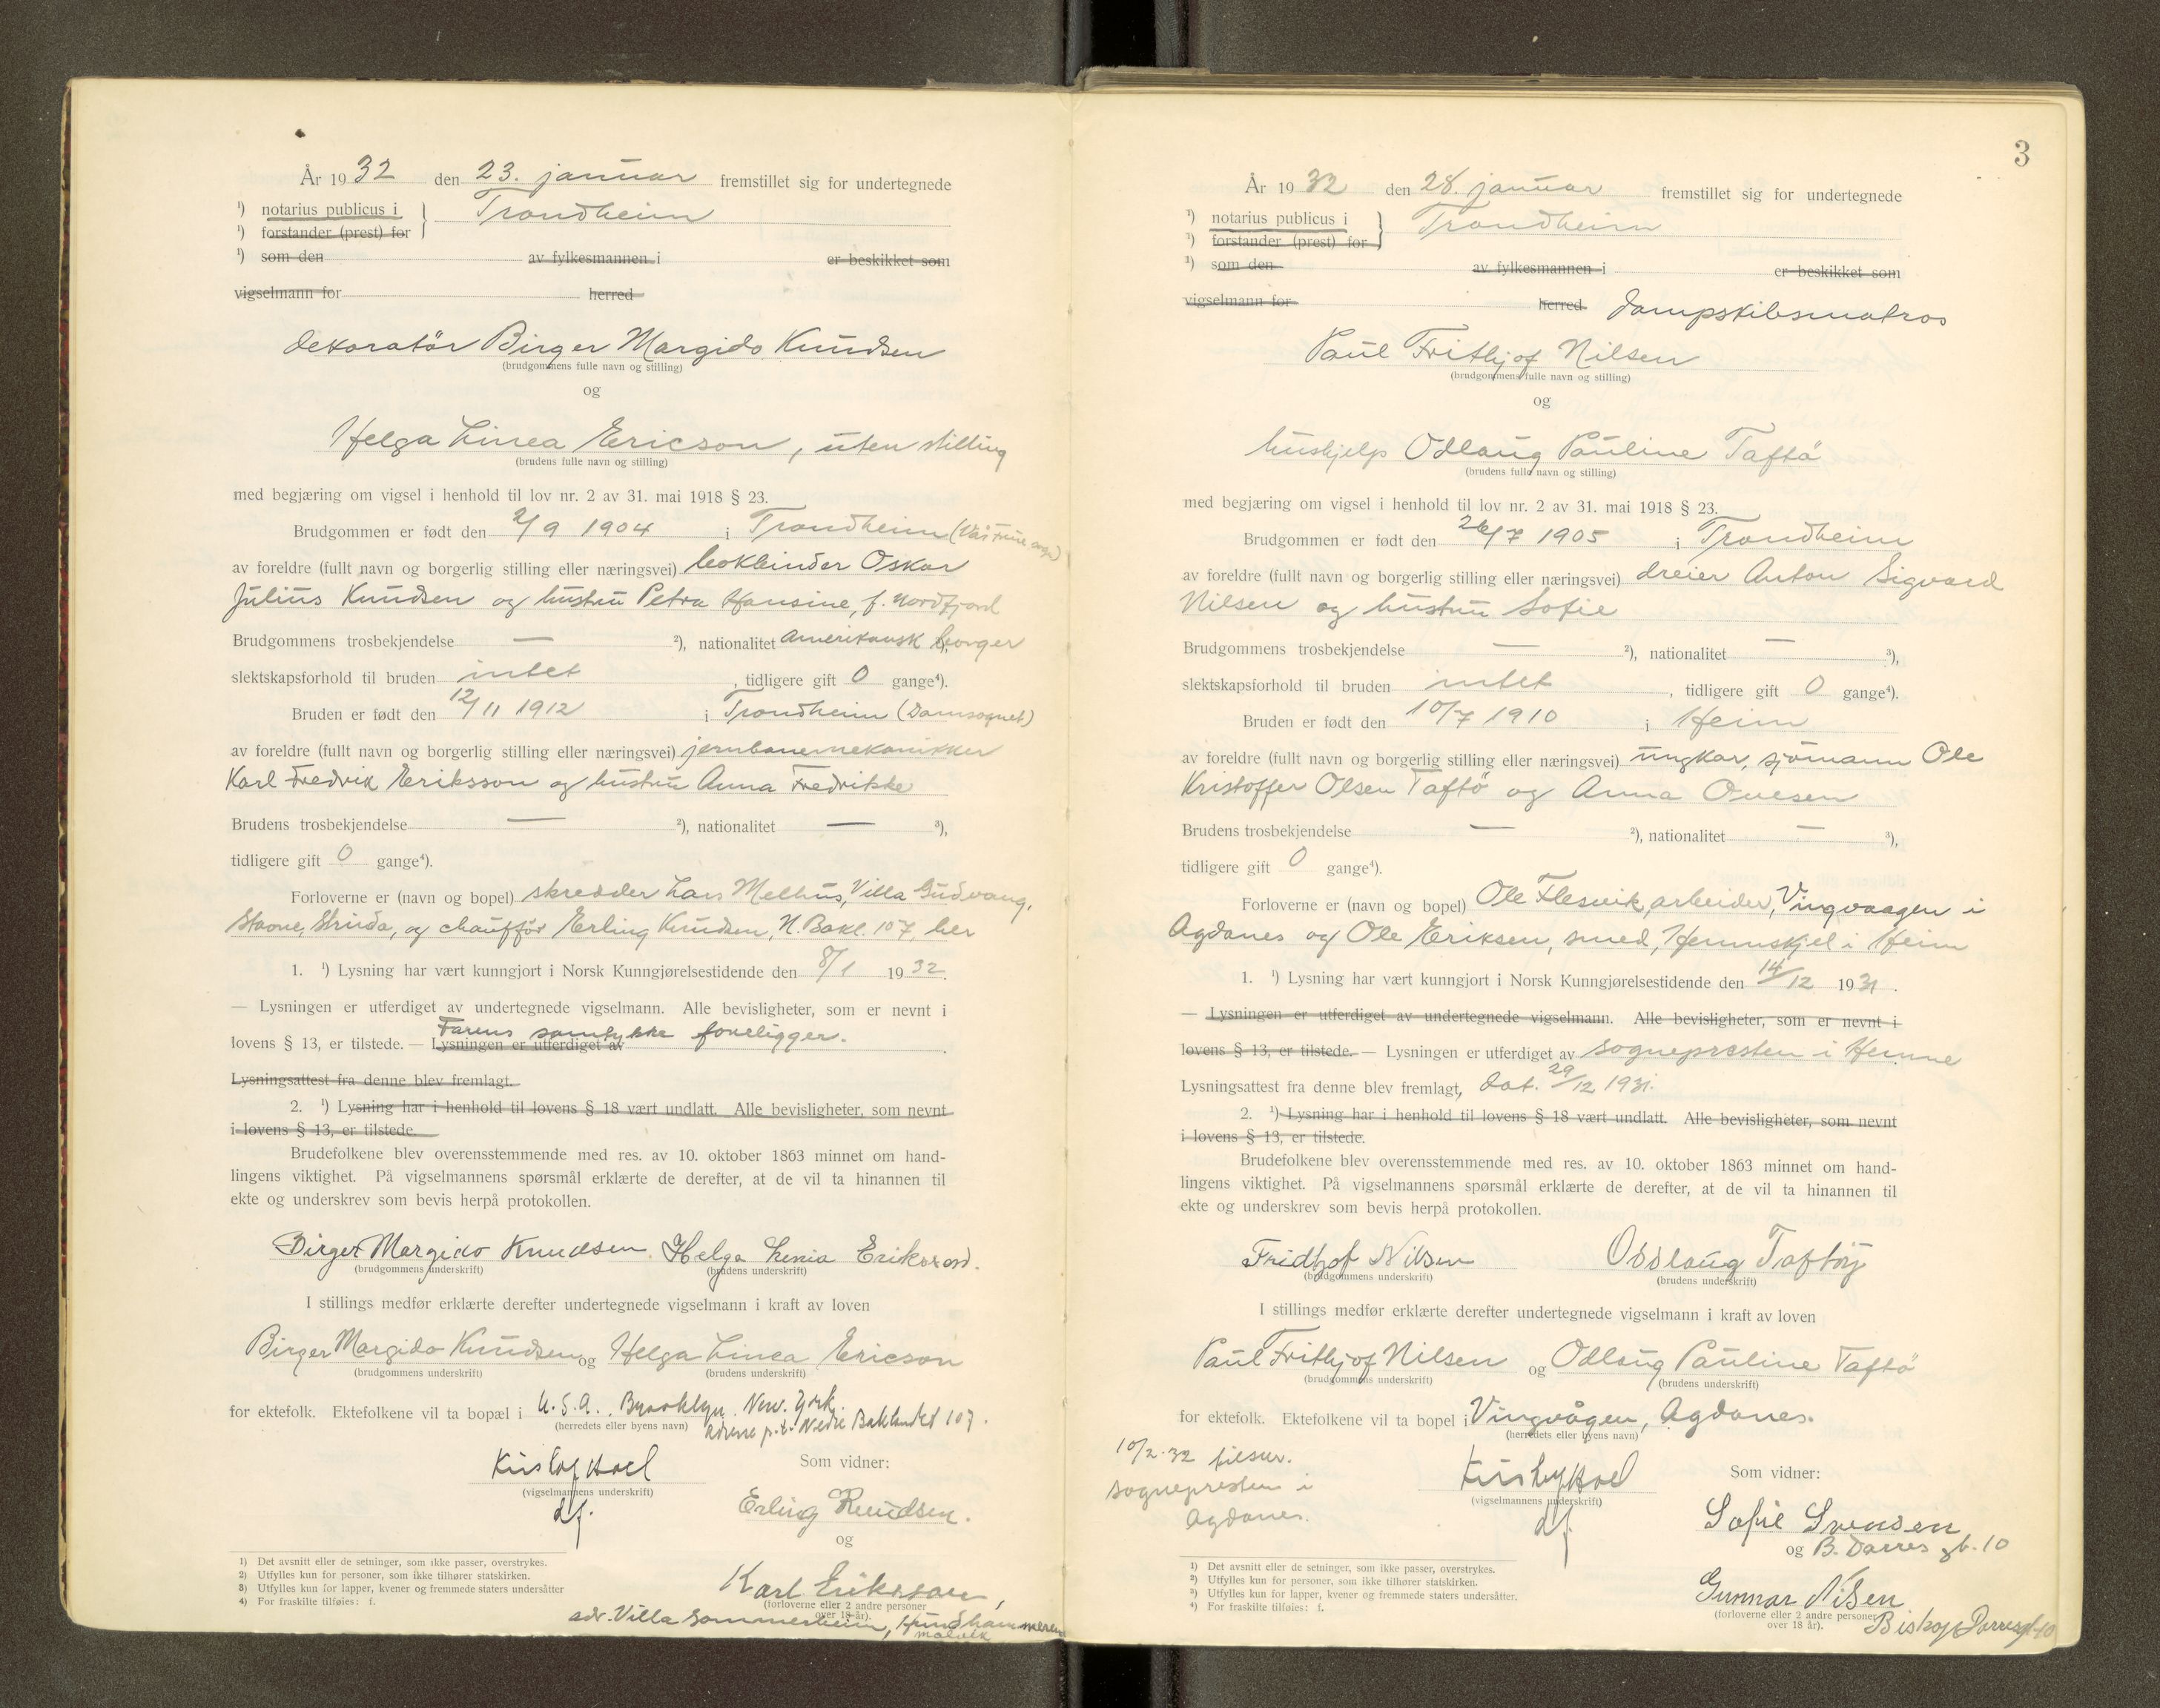 År 1932 den 23. januar fremstillet sig for undertegnede
¹) notarius publicus i } Trondheim
¹) forstander (prest) for
¹) som den av fylkesmannen i er beskikket som
vigselmann for herred
dekoratör Birger Margido Knudsen
(brudgommens fulle navn og stilling)
og
Helga Linea Ericson, uten stilling
(brudens fulle navn og stilling)
med begjæring om vigsel i henhold til lov nr. 2 av 31. mai 1918 § 23.
Brudgommen er født den 2/9 1904 i Trondheim (Vår Frue sogn)
av foreldre (fullt navn og borgerlig stilling eller næringsvei) bokbinder Oskar
Julius Knudsen og hustru Petra Hansine, f. Nordfjord
Brudgommens trosbekjendelse — ²), nationalitet Amerikansk borger ³),
slektskapsforhold til bruden intet, tidligere gift 0 gange⁴).
Bruden er født den 12/11 1912 i Trondheim (Domsognet)
av foreldre (fullt navn og borgerlig stilling eller næringsvei) jernbanemekanikker
Karl Fredrik Eriksson og hustru Anna Fredrikke
Brudens trosbekjendelse — ²), nationalitet — ³),
tidligere gift 0 gange⁴).
Forloverne er (navn og bopel) skredder Lars Melhus, Villa Gudvang,
Stavne, Strinda, og chauffør Erling Knudsen, N. Bakl. 107, her
1. ¹) Lysning har vært kunngjort i Norsk Kunngjørelsestidende den 8/1 1932.
— Lysningen er utferdiget av undertegnede vigselmann. Alle bevisligheter, som er nevnt i
Farens samtykke foreligger.
lovens § 13, er tilstede. — Lysningen er utferdiget av
Lysningsattest fra denne blev fremlagt.
2. ¹) Lysning har i henhold til lovens § 18 vært undlatt. Alle bevisligheter, som nevnt
i lovens § 13, er tilstede.
Brudefolkene blev overensstemmende med res. av 10. oktober 1863 minnet om hand-
lingens viktighet. På vigselmannens spørsmål erklærte de derefter, at de vil ta hinannen til
ekte og underskrev som bevis herpå protokollen.
Birger Margido Knudsen. Helga Linia Eriksson.
(brudgommens underskrift) (brudens underskrift)
I stillings medfør erklærte derefter undertegnede vigselmann i kraft av loven
Birger Margido Knudsen og Helga Linea Ericson
(brudgommens underskrift) (brudens underskrift)
for ektefolk. Ektefolkene vil ta bopæl i U.S.A. Brooklyn. New. York.
(herredets eller byens navn) Adresse p.t. Nedre Baklandet 107.
Som vidner:
(vigselmannens underskrift)
Erling Knudsen.
og
Karl Eriksson,
(forloverne eller 2 andre personer
over 18 år).
adr. Villa Sommerheim, Hundhammeren
Malvik
1) Det avsnitt eller de setninger, som ikke passer, overstrykes.
2) Utfylles kun for personer, som ikke tilhører statskirken.
3) Utfylles kun for lapper, kvener og fremmede staters undersåtter
4) For fraskilte tilføies: f.
3
År 1932 den 28. januar fremstillet sig for undertegnede
¹) notarius publicus i } Trondheim
¹) forstander (prest) for
¹) som den av fylkesmannen i er beskikket som
vigselmann for herred dampskibsmatros
Paul Frithjof Nilsen
(brudgommens fulle navn og stilling)
og
hushjelp Odlaug Pauline Taftö
(brudens fulle navn og stilling)
med begjæring om vigsel i henhold til lov nr. 2 av 31. mai 1918 § 23.
Brudgommen er født den 26/7 1905 i Trondheim
av foreldre (fullt navn og borgerlig stilling eller næringsvei) dreier Anton Sigvard
Nilsen og hustru Sofie
Brudgommens trosbekjendelse — ²), nationalitet — ³),
slektskapsforhold til bruden intet, tidligere gift 0 gange⁴).
Bruden er født den 10/7 1910 i Heim
av foreldre (fullt navn og borgerlig stilling eller næringsvei) ungkar, sjömann Ole
Kristoffer Olsen Taftö og Anna Ovesen
Brudens trosbekjendelse — ²), nationalitet — ³),
tidligere gift 0 gange⁴).
Forloverne er (navn og bopel) Ole Flesvik, arbeider, Vingvaagen i
Agdanes og Ole Eriksen, smed, Hemnskjel i Heim
1. ¹) Lysning har vært kunngjort i Norsk Kunngjørelsestidende den 14/12 1931.
— Lysningen er utferdiget av undertegnede vigselmann. Alle bevisligheter, som er nevnt i
lovens § 13, er tilstede. — Lysningen er utferdiget av sognepresten i Hemne
Lysningsattest fra denne blev fremlagt, dat. 29/12 1931.
2. ¹) Lysning har i henhold til lovens § 18 vært undlatt. Alle bevisligheter, som nevnt
i lovens § 13, er tilstede.
Brudefolkene blev overensstemmende med res. av 10. oktober 1863 minnet om hand-
lingens viktighet. På vigselmannens spørsmål erklærte de derefter, at de vil ta hinannen til
ekte og underskrev som bevis herpå protokollen.
Fridhjof Nilsen Oddlaug Taftøy
(brudgommens underskrift) (brudens underskrift)
I stillings medfør erklærte derefter undertegnede vigselmann i kraft av loven
Paul Frithjof Nilsen og Odlaug Pauline Taftö
(brudgommens underskrift) (brudens underskrift)
for ektefolk. Ektefolkene vil ta bopel i Vingvågen, Agdanes.
(herredets eller byens navn)
10/2-32 tilskr.
sognepresten i
Agdanes.
Som vidner:
(vigselmannens underskrift)
Sofie Svendsen
og B. Darres gt. 10
Gunnar Nilsen
(forloverne eller 2 andre personer
over 18 år). Biskop Darresgt 10
¹) Det avsnitt eller de setninger, som ikke passer, overstrykes.
²) Utfylles kun for personer, som ikke tilhører statskirken.
³) Utfylles kun for lapper, kvener og fremmede staters undersåtter.
⁴) For fraskilte tilføies: f.